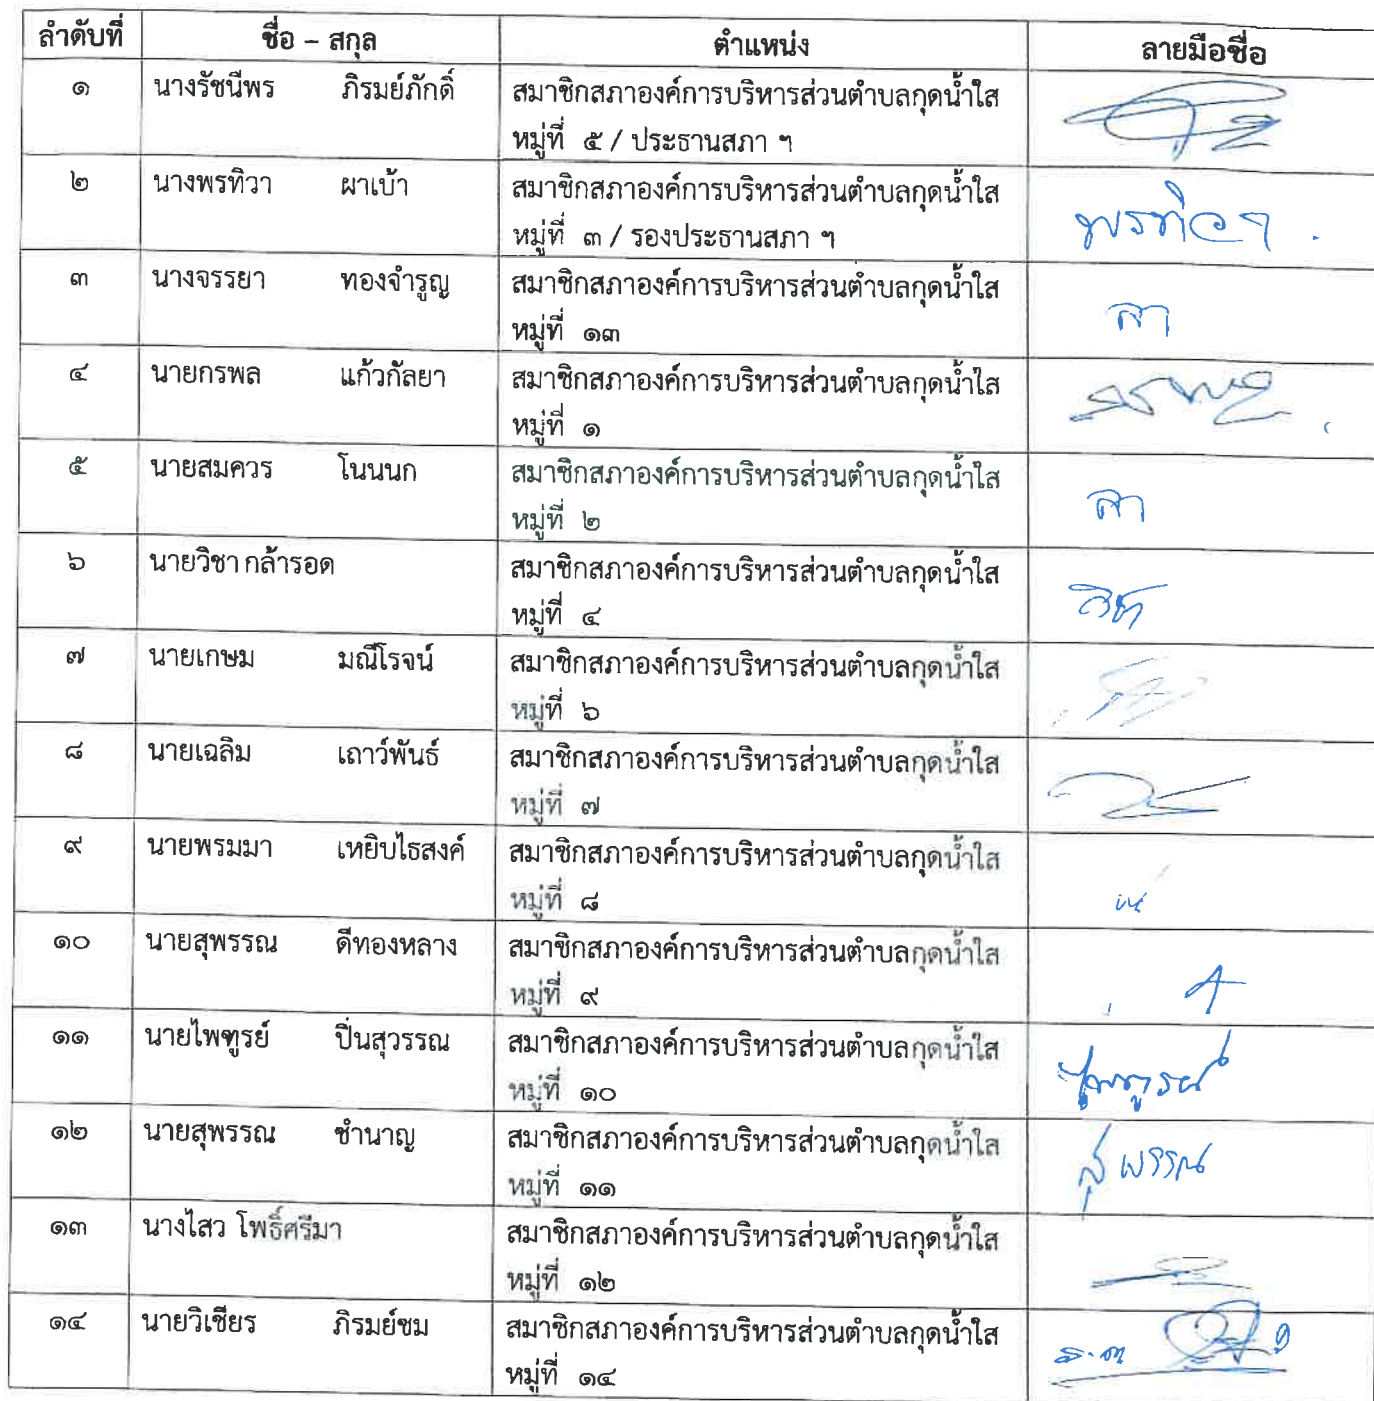 ลำดับที่ ชื่อ – สกุล ตำแหน่ง ลายมือชื่อ
๑ นางรัชนีพร ภิรมย์ภักดิ์ สมาชิกสภาองค์การบริหารส่วนตำบลกุดน้ำใส
หมู่ที่ ๕ / ประธานสภา ฯ
๒ นางพรทิวา ผาเบ้า สมาชิกสภาองค์การบริหารส่วนตำบลกุดน้ำใส
หมู่ที่ ๓ / รองประธานสภา ฯ พรทิวา
๓ นางจรรยา ทองจำรูญ สมาชิกสภาองค์การบริหารส่วนตำบลกุดน้ำใส
หมู่ที่ ๑๓ ลา
๔ นายกรพล แก้วกัลยา สมาชิกสภาองค์การบริหารส่วนตำบลกุดน้ำใส
หมู่ที่ ๑ กรพล
๕ นายสมควร โนนนก สมาชิกสภาองค์การบริหารส่วนตำบลกุดน้ำใส
หมู่ที่ ๒ ลา
๖ นายวิชา กล้ารอด สมาชิกสภาองค์การบริหารส่วนตำบลกุดน้ำใส
หมู่ที่ ๔ วิชา
๗ นายเกษม มณีโรจน์ สมาชิกสภาองค์การบริหารส่วนตำบลกุดน้ำใส
หมู่ที่ ๖
๘ นายเฉลิม เถาว์พันธ์ สมาชิกสภาองค์การบริหารส่วนตำบลกุดน้ำใส
หมู่ที่ ๗
๙ นายพรมมา เหยิบไธสงค์ สมาชิกสภาองค์การบริหารส่วนตำบลกุดน้ำใส
หมู่ที่ ๘
๑๐ นายสุพรรณ ดีทองหลาง สมาชิกสภาองค์การบริหารส่วนตำบลกุดน้ำใส
หมู่ที่ ๙
๑๑ นายไพฑูรย์ ปิ่นสุวรรณ สมาชิกสภาองค์การบริหารส่วนตำบลกุดน้ำใส
หมู่ที่ ๑๐ ไพฑูรย์
๑๒ นายสุพรรณ ชำนาญ สมาชิกสภาองค์การบริหารส่วนตำบลกุดน้ำใส
หมู่ที่ ๑๑ สุพรรณ
๑๓ นางไสว โพธิ์ศรีมา สมาชิกสภาองค์การบริหารส่วนตำบลกุดน้ำใส
หมู่ที่ ๑๒
๑๔ นายวิเชียร ภิรมย์ชม สมาชิกสภาองค์การบริหารส่วนตำบลกุดน้ำใส
หมู่ที่ ๑๔